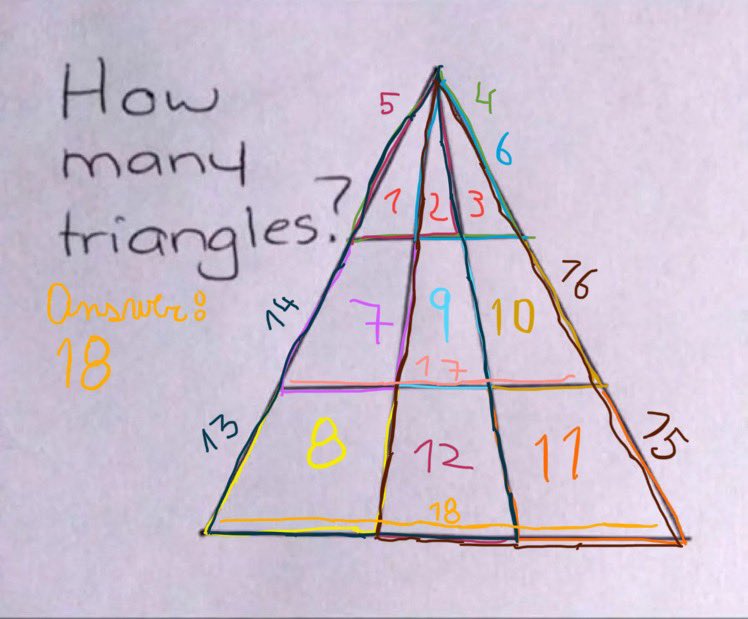 How
many
triangles?
Answer:
18
5
4
6
1 2 3
14
7 9 10
16
17
13
8 12 11
15
18